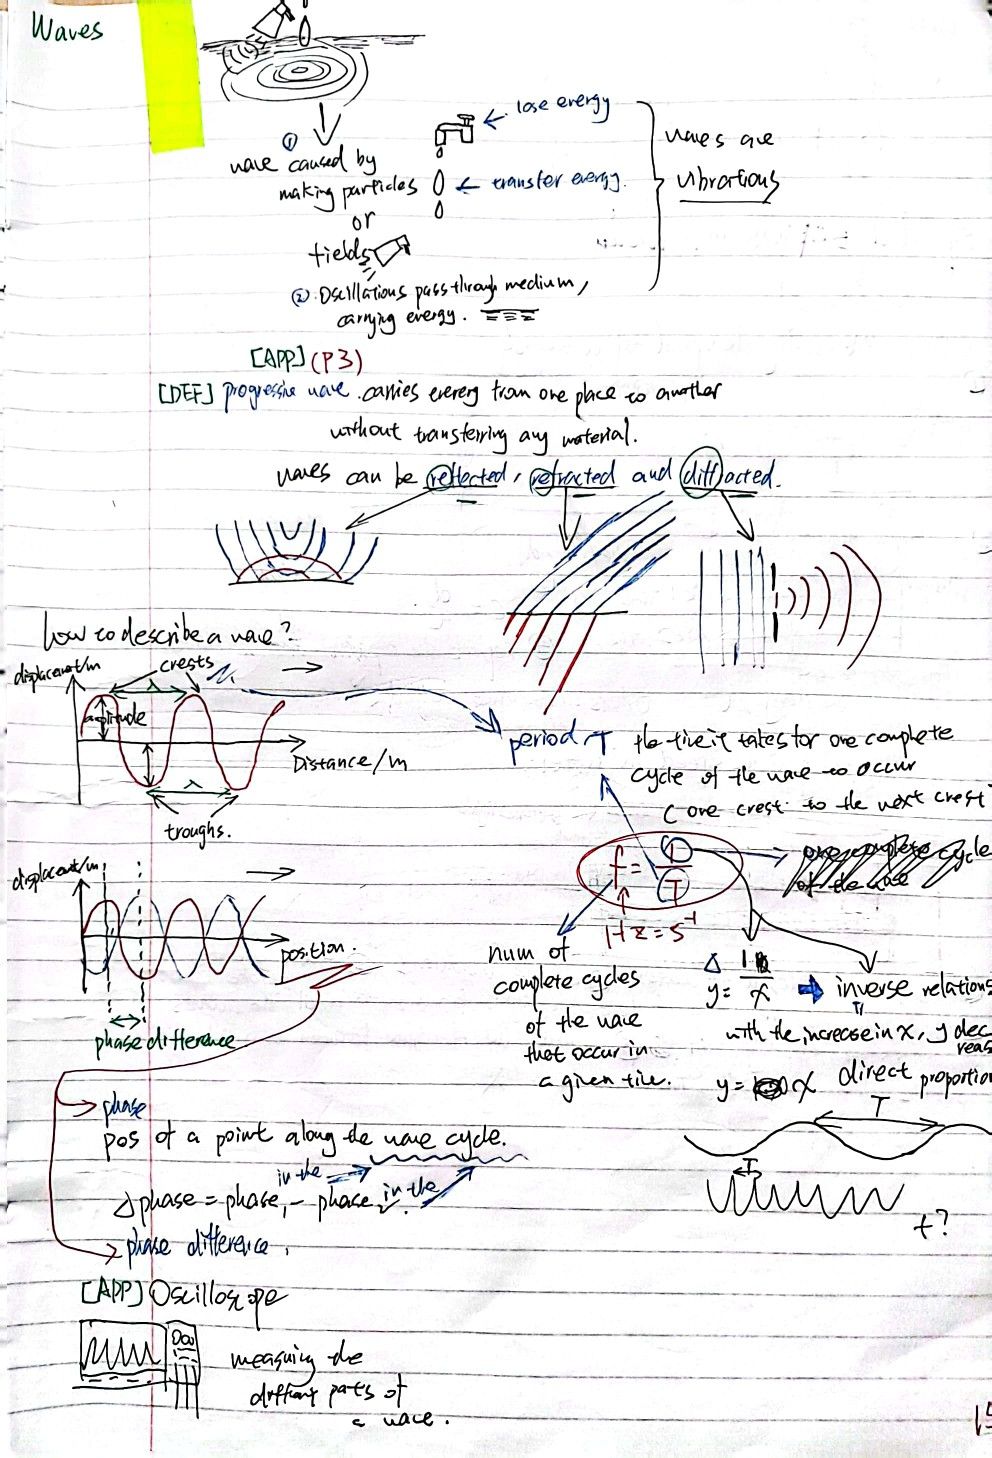 Waves
lose energy
①
wave caused by
making particles
or
fields
transfer energy.
waves are
vibrations
② Oscillations pass through medium,
carrying energy.
[APP] (P3)
[DEF] progressive wave. carries energy from one place to another
without transferring any material.
waves can be reflected, refracted and diffracted.
how to describe a wave?
displacement/m
crests
λ
amplitude
Distance/m
λ
troughs.
period, T
the time it takes for one complete
cycle of the wave to occur
(one crest to the next crest
f = 1/T
one complete cycle
of the wave
Hz = s⁻¹
num of
complete cycles
of the wave
that occur in
a given time.
Δ y = 1/x
inverse relations
with the increase in x, y dec
reas
y = x direct proportion
T
T
t?
displacement/m
position.
phase difference
phase
pos of a point along the wave cycle.
in the
Δphase = phase₁ - phase₂ in the
phase difference.
[APP] Oscilloscope
measuring the
different parts of
a wave.